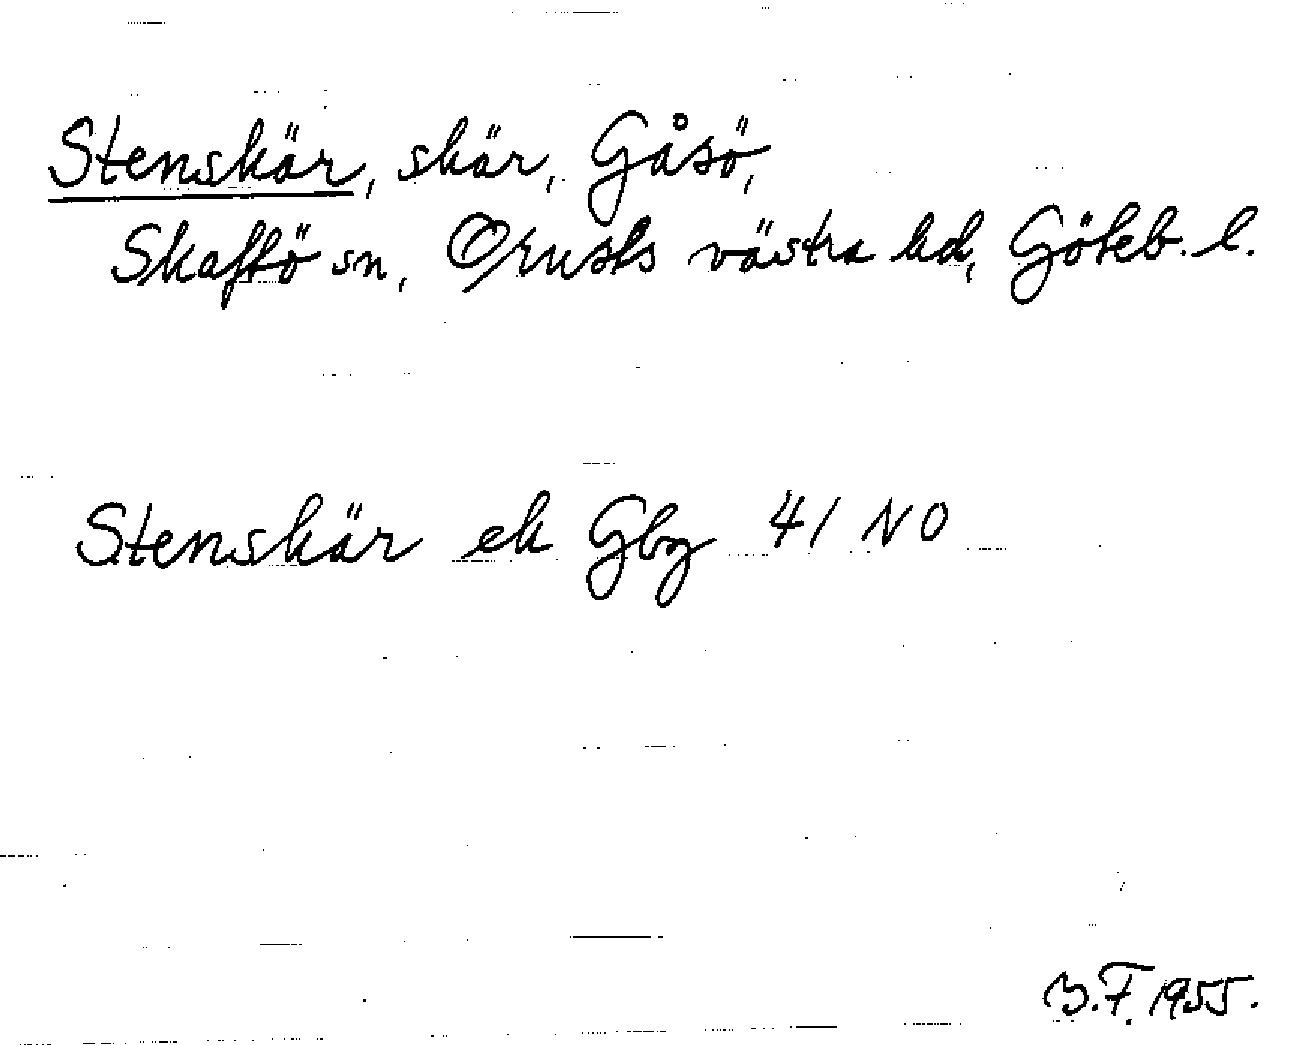 Stenskär, skär, Gåsö,
Skaftö sn, Orusts västra hd, Göteb. l.
Stenskär ek Gbg 41 NO
B.F. 1955.